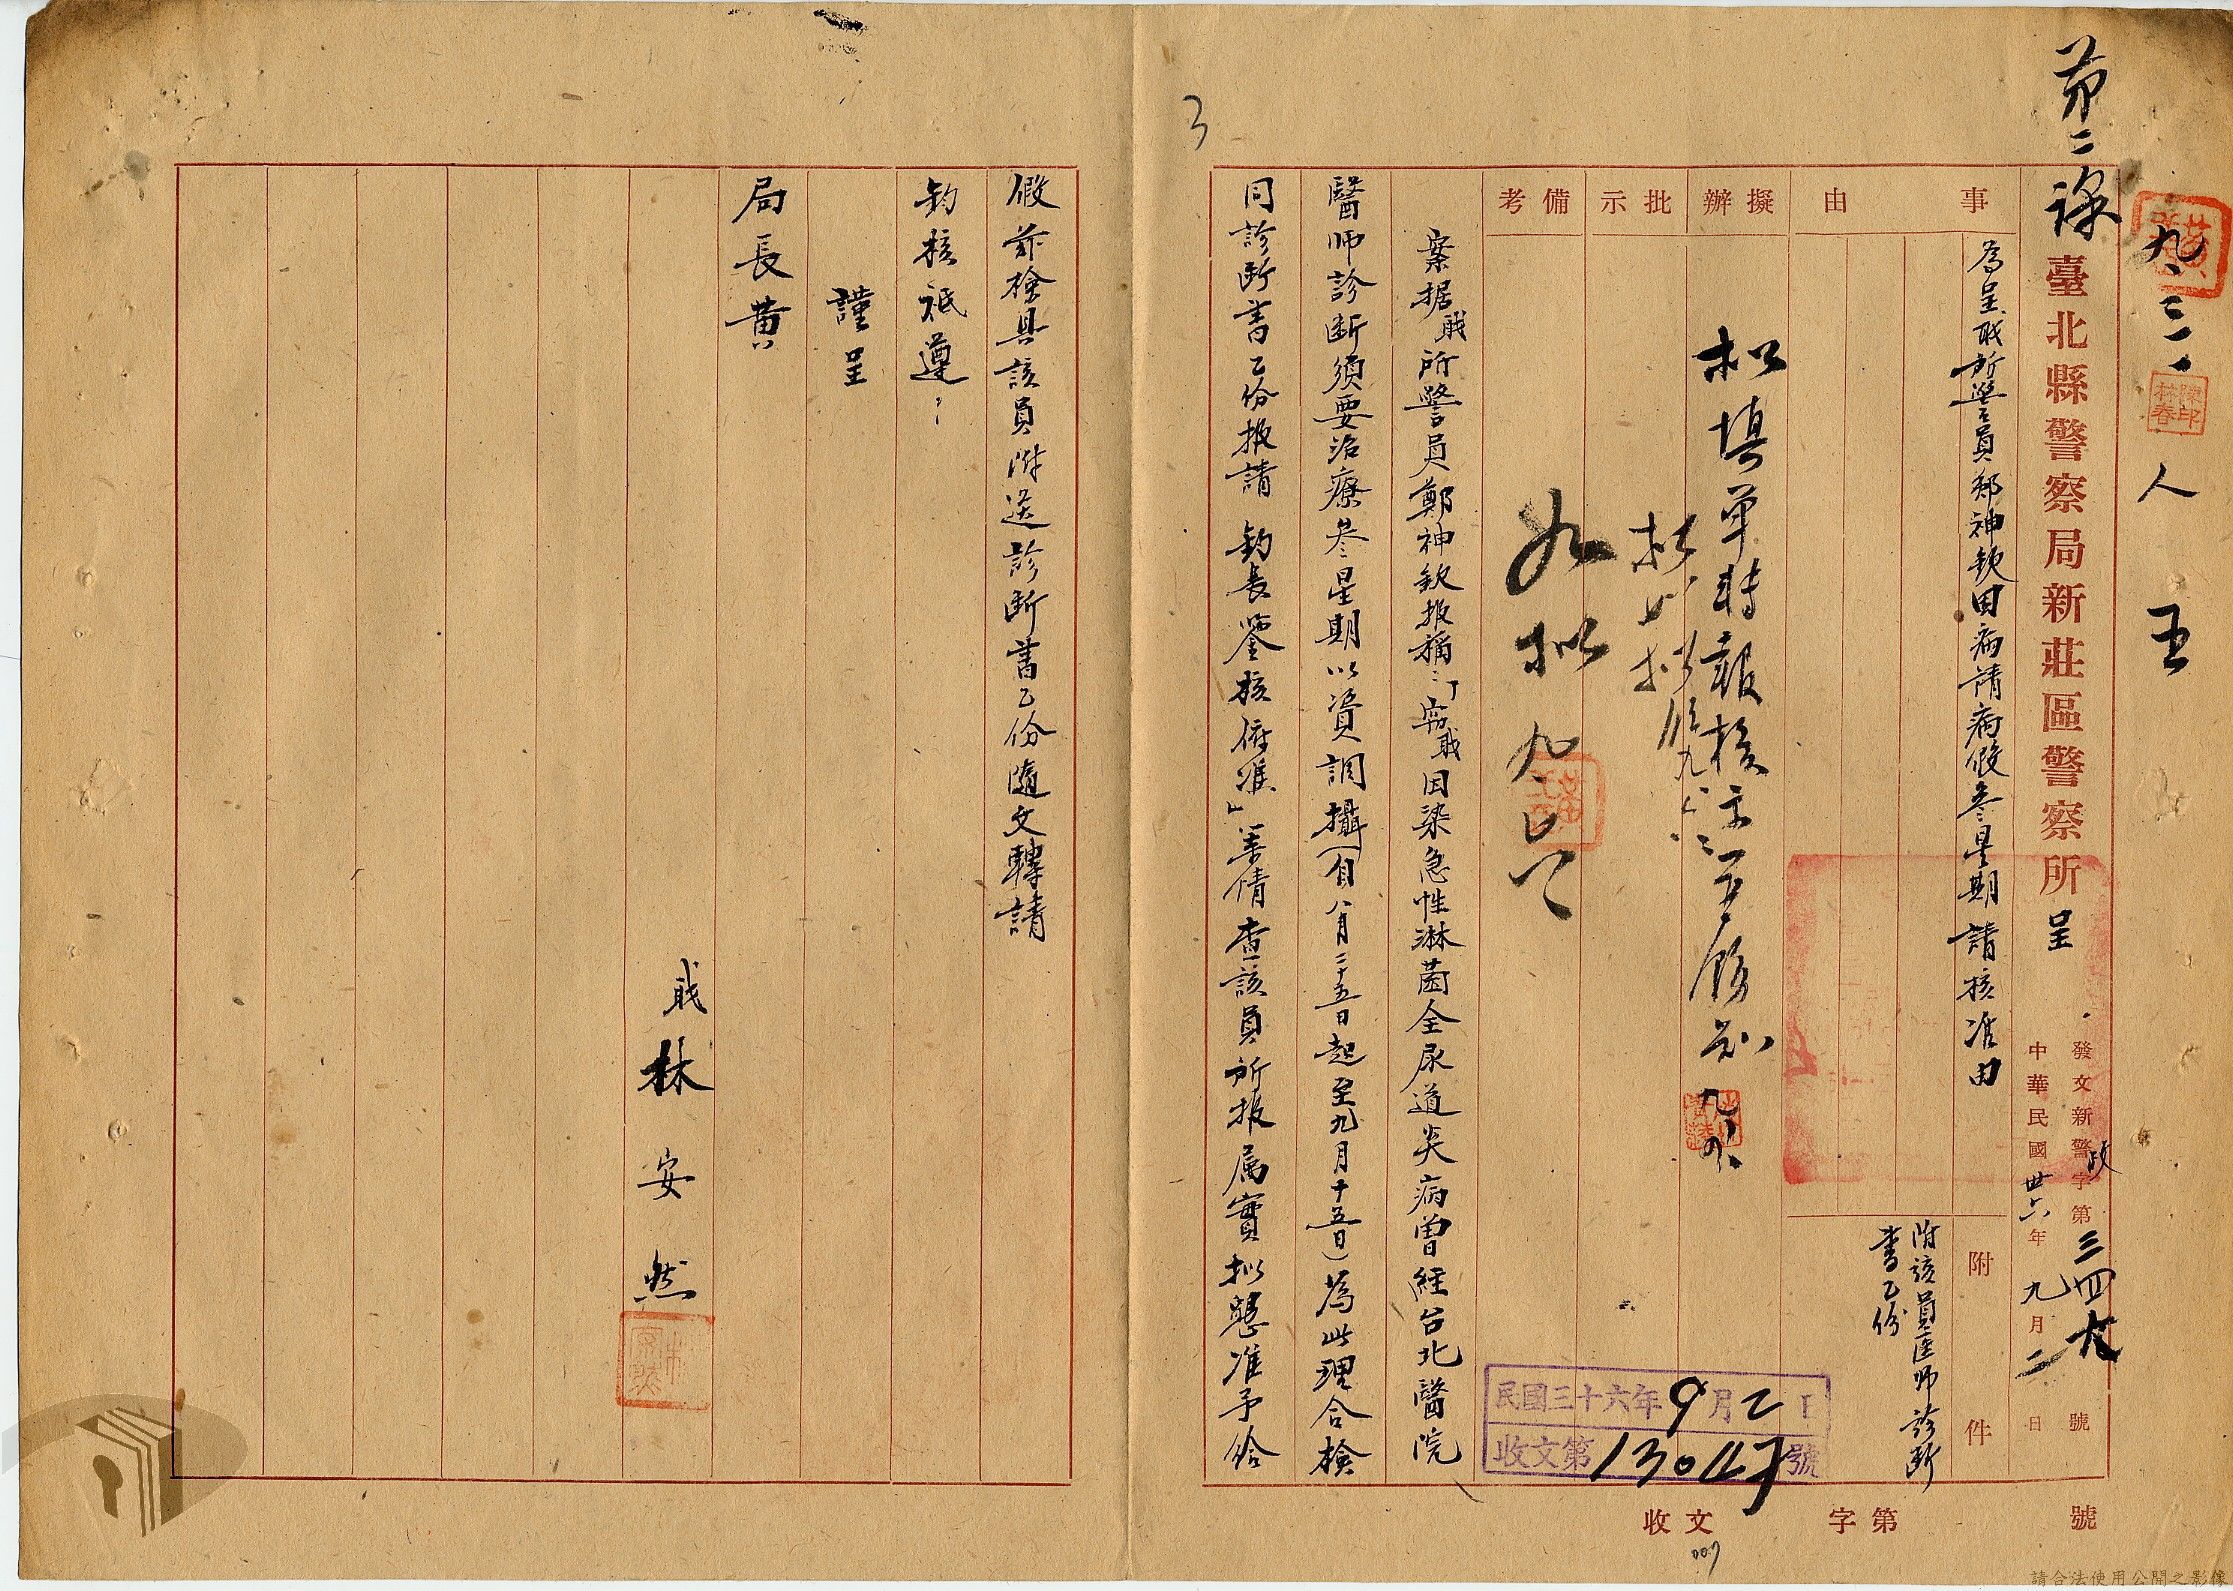 第二課
九、三、
人
五
臺北縣警察局新莊區警察所呈
發文新警政字第三四九號
中華民國卅六年九月二日
事由
為呈職所警員鄭神欽因病請病假叁星期請核准由
附件
附該員医師診断
書乙份
擬辦
批示
如拟
備考
案据職所警員鄭神欽报稱:「竊職因染急性淋菌全尿道炎病曾經台北醫院
醫师診断須要治療叁星期以資調攝(自八月二十五日起至九月十五日)為此理合檢
同診断書乙份报請 鈞長鑒核俯准」等情查該員所报属實拟懇准予給
假茲檢具該員附送診断書乙份隨文轉請
鈞核祗遵!
謹呈
局長黄
職林安然
民國三十六年9月2日
收文第13047號
收文 字第 號
3
007
請合法使用公開之影像